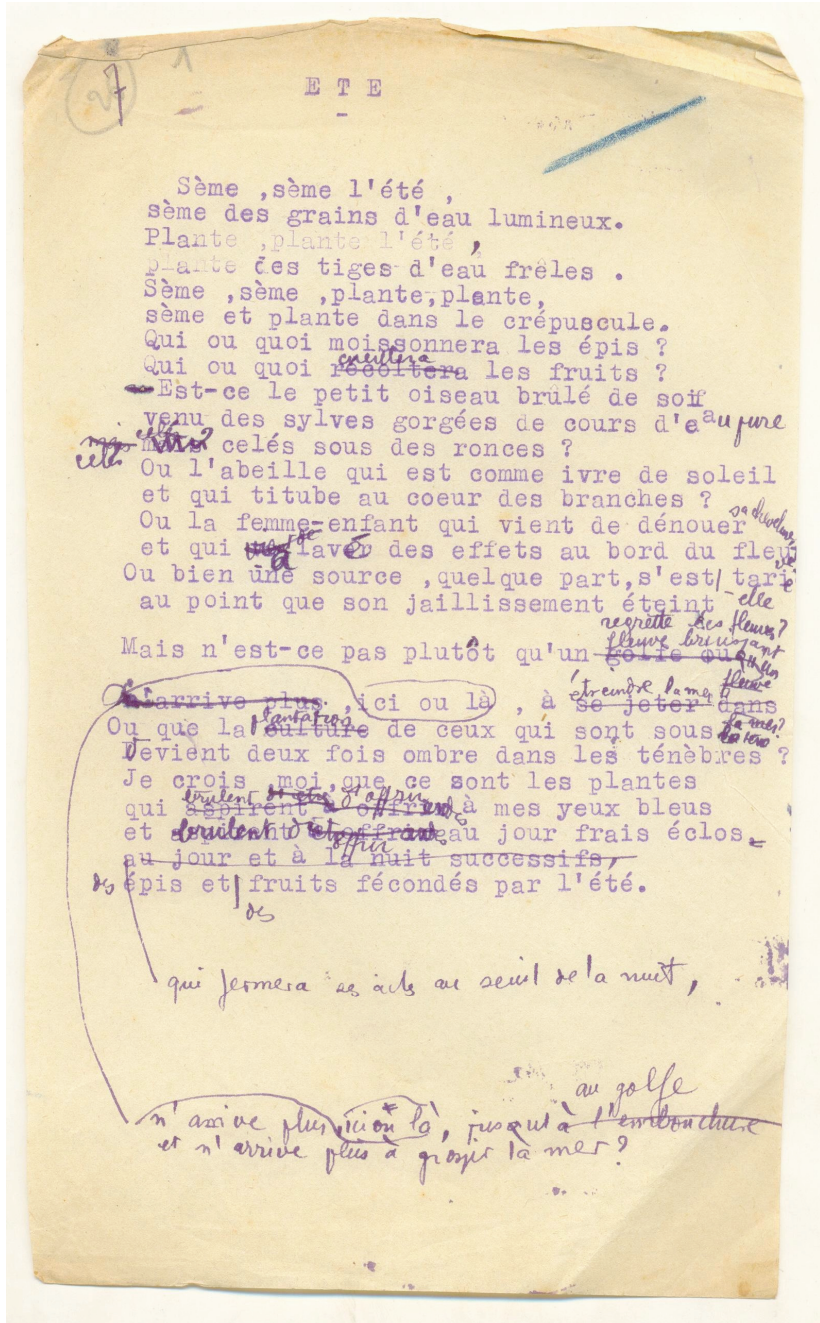 7
1
E T E
-
Sème ,sème l'été ,
sème des grains d'eau lumineux.
Plante ,plante l'été ,
plante des tiges d'eau frêles .
Sème ,sème ,plante,plante,
sème et plante dans le crépuscule.
Qui ou quoi moissonnera les épis ?
cueillera
Qui ou quoi récoltera les fruits ?
Est-ce le petit oiseau brûlé de soif
venu des sylves gorgées de cours d'eau pure
mais celés sous des ronces ?
Ou l'abeille qui est comme ivre de soleil
et qui titube au coeur des branches ?
Ou la femme-enfant qui vient de dénouer sa chevelure
et qui a lavé des effets au bord du fleuve
Ou bien une source ,quelque part,s'est tarie
au point que son jaillissement éteint -elle
regrette les fleuves?
fleuve bruissant
Mais n'est-ce pas plutôt qu'un golfe ou
fleuve
étreindre la mer
n'arrive plus ,ici ou là , à se jeter dans
la mer?
plantation
Ou que la culture de ceux qui sont sous
Devient deux fois ombre dans les ténèbres ?
Je crois ,moi,que ce sont les plantes
brûlent d'offrir
qui aspirent à offrir à mes yeux bleus
et brûlent d'offrir au jour frais éclos
au jour et à la nuit successifs,
des épis et fruits fécondés par l'été.
des
qui fermera ses cils au seuil de la nuit,
au golfe
n'arrive plus, ici ou là, jusqu'à l'embouchure
et n'arrive plus à grossir la mer?